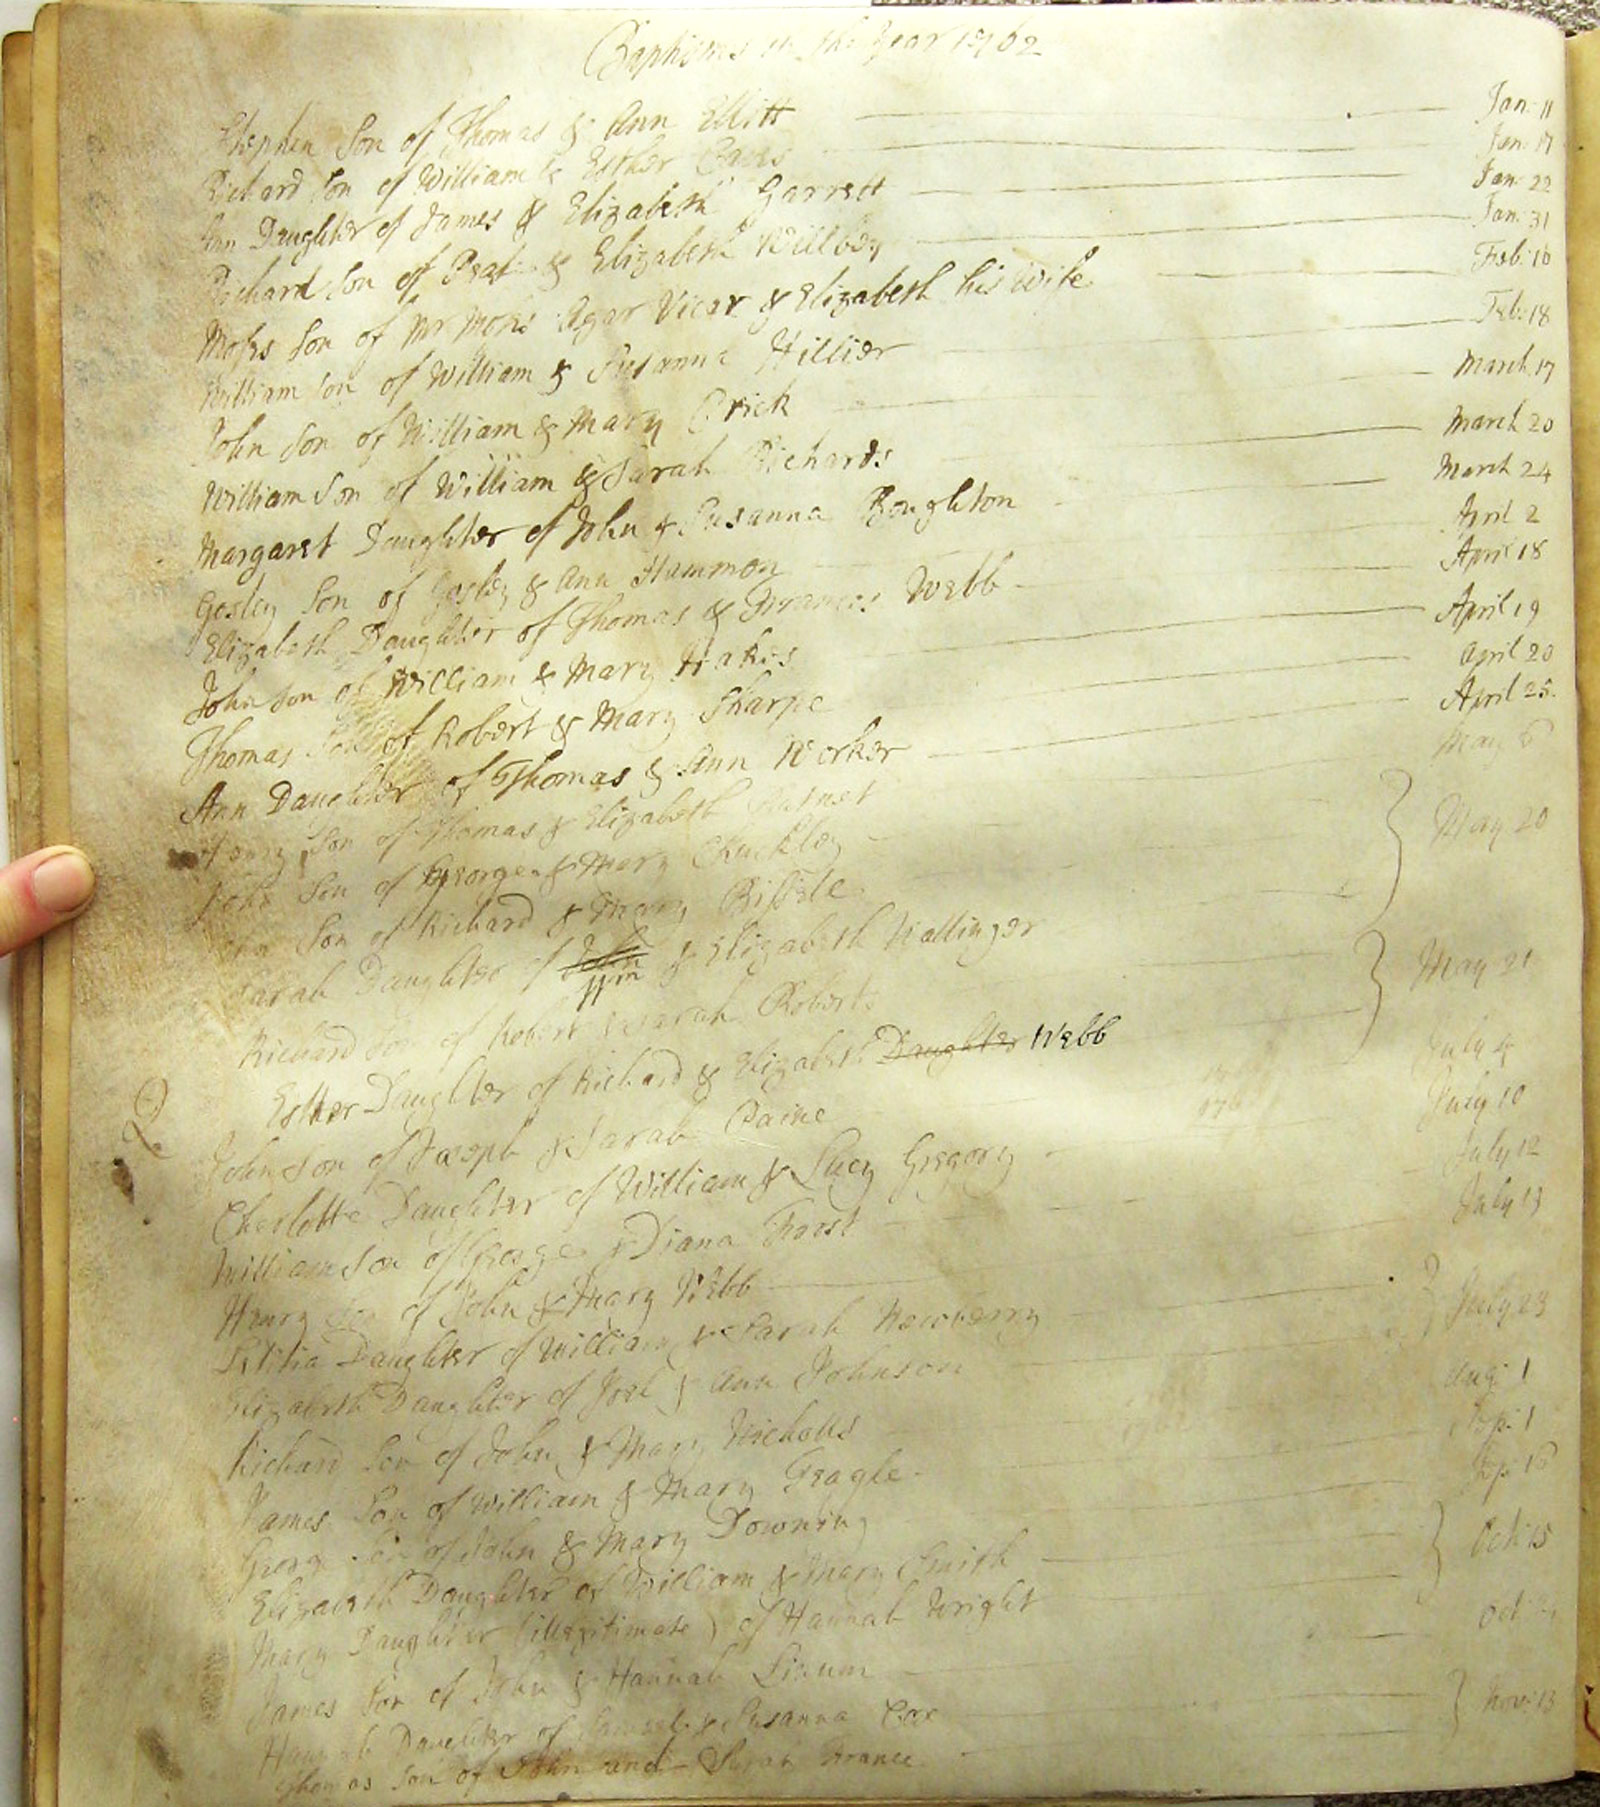 Baptisms in the Year 1762
Stephen Son of Thomas & Ann Ellitt Jan: 11
Richard Son of William & Esther Jan: 17
Ann Daughter of James & Elizabeth Garrett Jan: 22
Richard Son of & Elizabeth Willbey Jan: 31
Moses Son of Mr Moses Agar Vicar & Elizabeth his Wife Feb: 10
William Son of William & Susanna Hillier Feb: 18
John Son of William & Mary Crick March 17
William Son of William & Sarah Richards March 20
Margaret Daughter of John & Susanna Boughton March 24
Gosley Son of Gosley & Ann Hammon April 2
Elizabeth Daughter of Thomas & Frances Webb April 18
John Son of William & Mary April 19
Thomas Son of Robert & Mary Sharpe April 20
Ann Daughter of Thomas & Ann Worker April 25
Henry Son of Thomas & Elizabeth May 6
John Son of George & Mary Chuckley
Son of Richard & Mary May 20
Sarah Daughter of John Wm & Elizabeth Wallinger
Richard Son of Robert & Sarah Roberts May 21
Esther Daughter of Richard & Elizabeth Daughter Webb
John Son of Joseph & Sarah Paine July 4
Charlotte Daughter of William & Lucy Gregory July 10
William Son of George & Diana Frost July 12
Henry Son of John & Mary Webb July 13
Letitia Daughter of William & Sarah Newberry
Elizabeth Daughter of Joel & Ann Johnson July 23
Richard Son of John & Mary Nicholls Aug: 1
James Son of William & Mary Sep: 1
George Son of John & Mary Downing Sep: 16
Elizabeth Daughter of William & Mary Smith
Mary Daughter (illegitimate) of Hannah Wright Oct: 15
James Son of John & Hannah Oct:
Hannah Daughter of Samuel & Susanna Cox
Thomas Son of John and Sarah France Nov: 13